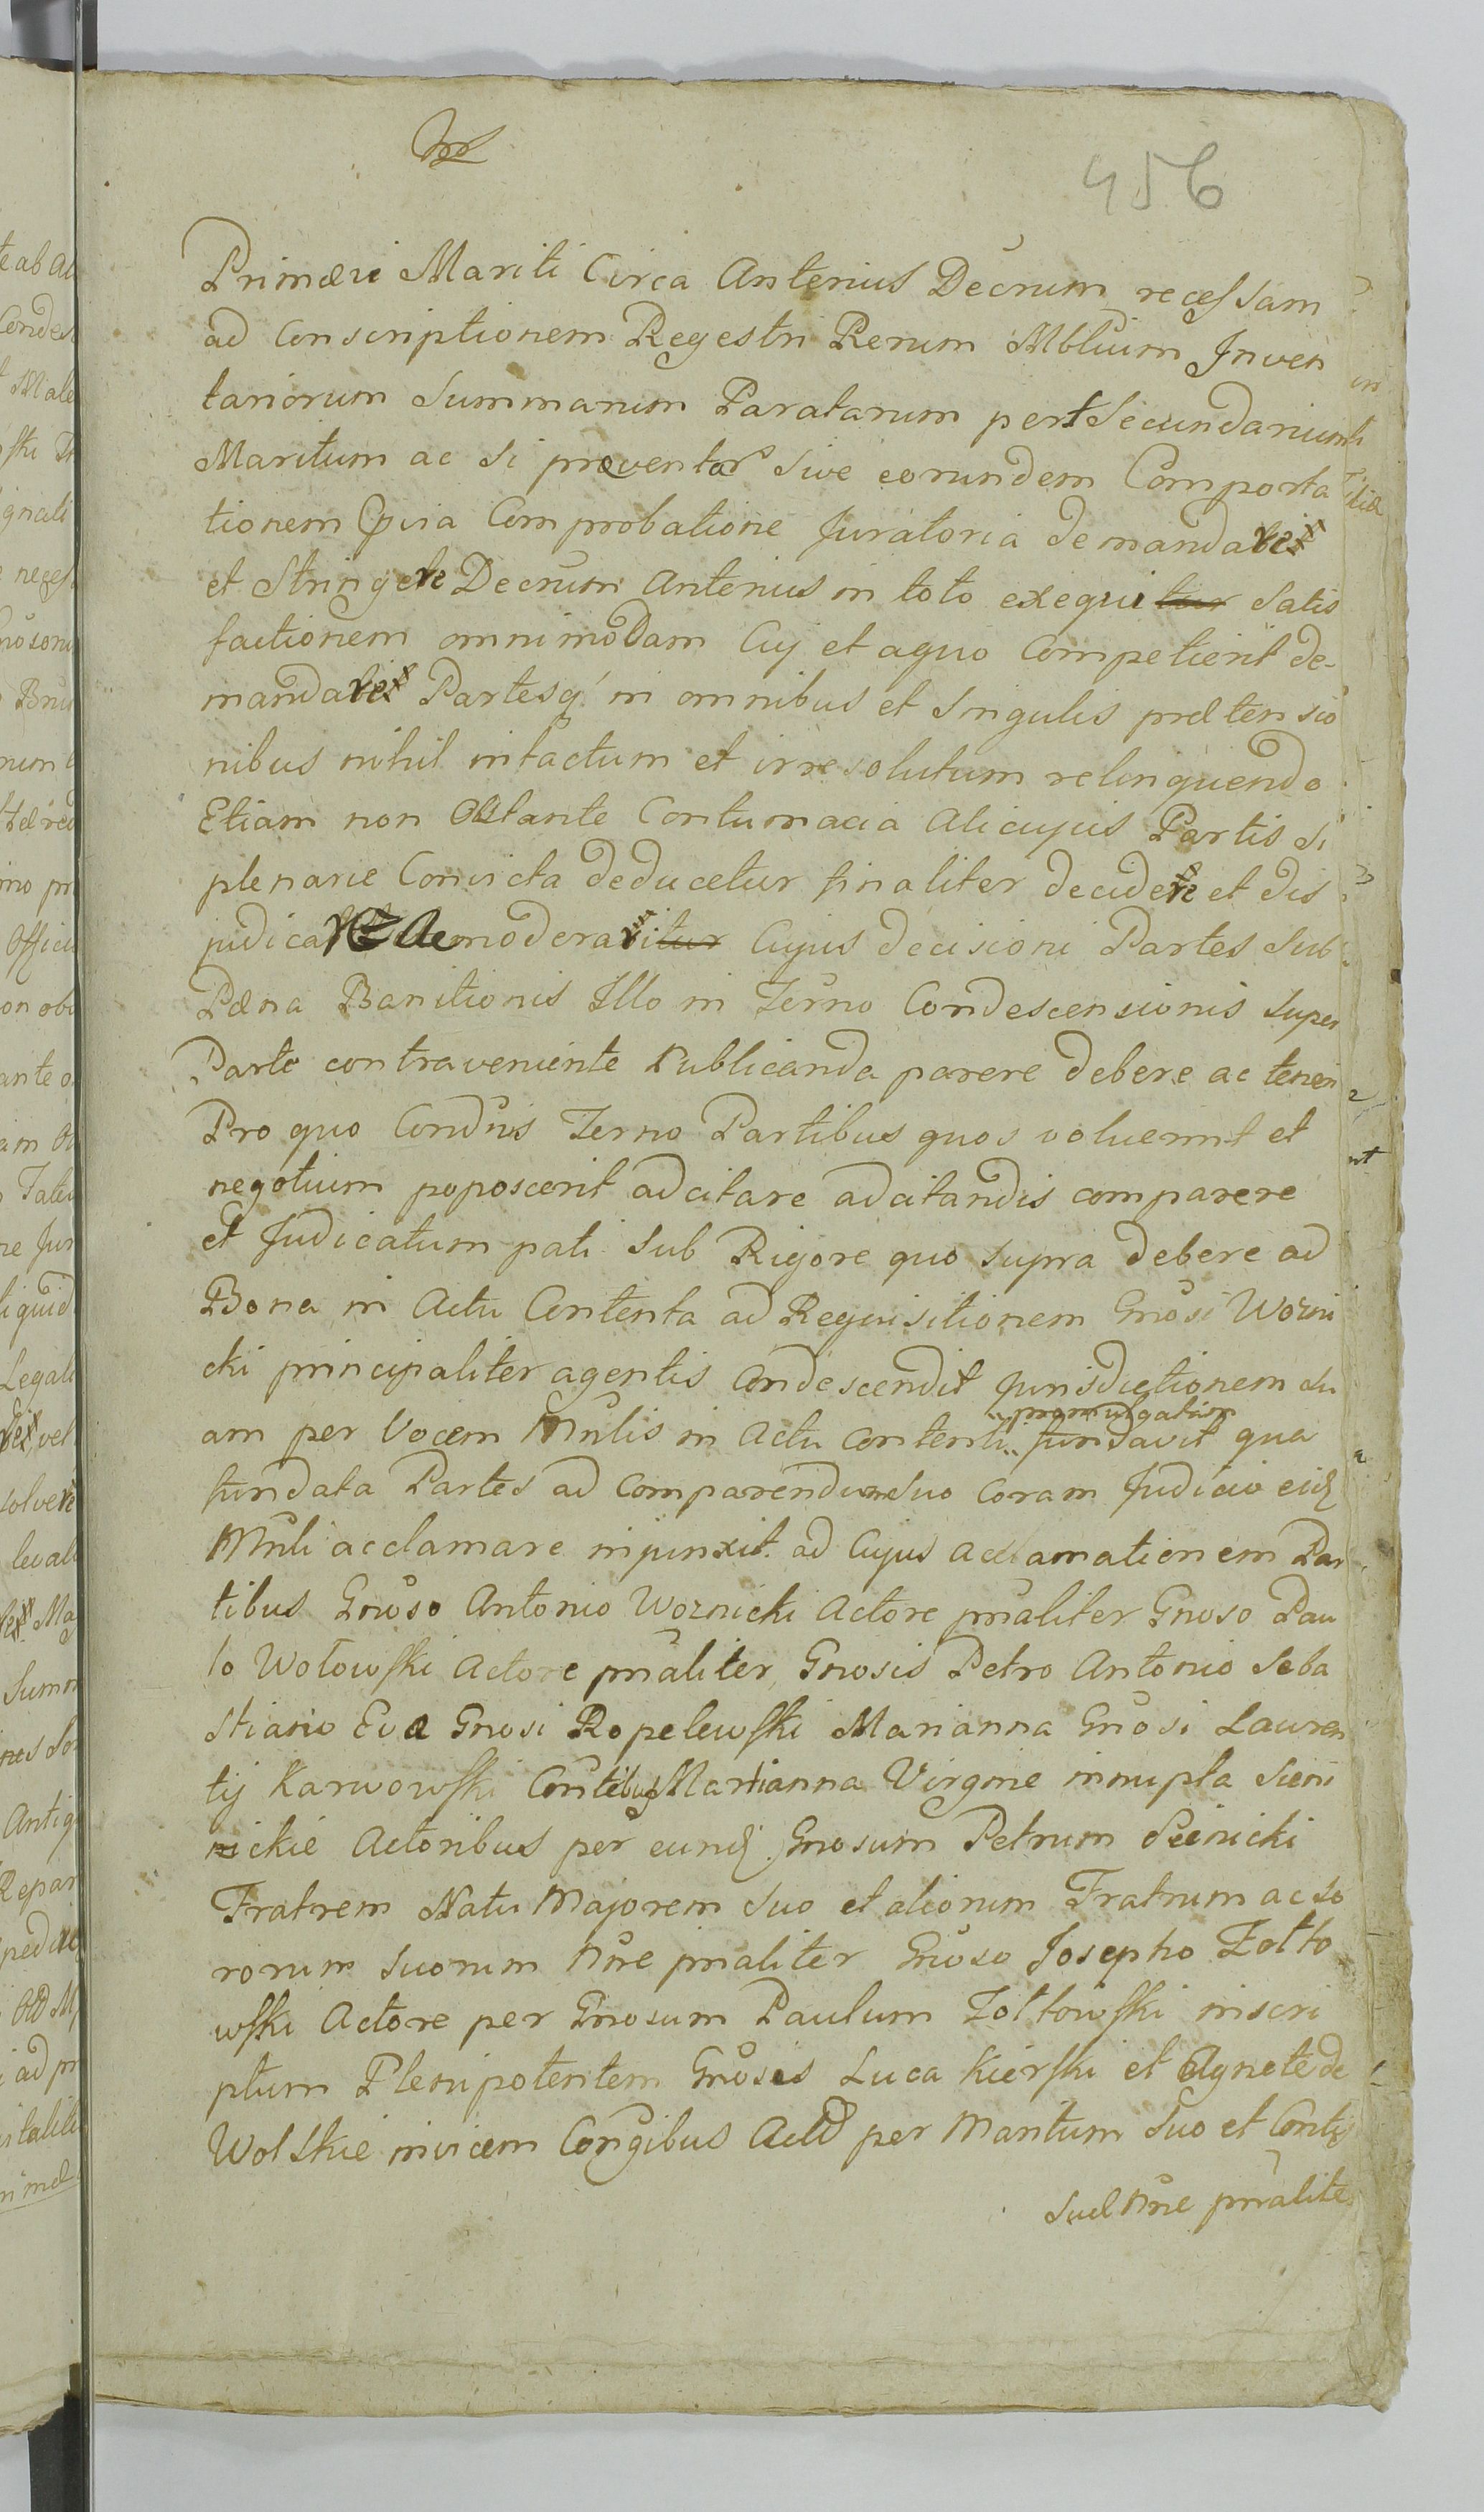 456
Primævi Mariti Circa Anterius Decrum recessam
ad Conscriptionem Regestri Rerum Mblium Inven
tariorum Summarum Paratarum per Secundarium
Maritum ac si præventar sive eorundem Comporta
tionem Prvia Comprobatione Juratoria demandare
et Stringere Decrum Anterius in toto exequi tur Satis
factionem omnimodam Cuj et aquo Competierit de-
mandare Partesq in omnibus et Singulis prætensio
nibus nihil intactum et irresolutum relinquendo
Etiam non Obstante Contumacia Alicujus Partis si
plenarie Convicta deducetur finaliter decidere et dis
judicare Ac moderari tur Cujus decisioni Partes Sub
Pæna Banitionis Illo in Termo Condescensionis Super
Parte contraveniente Publicanda parere debere ac teneri
Pro quo Condnis Termo Partibus quos voluerint et
negotium poposcerit adcitare adcitandis comparere
et Judicatum pati Sub Rigore quo supra debere ad
Bona in Actu Contenta ad Requisitionem Gnosi Wozni
cki principaliter agentis Condescendit Jurisdictionem Su
am per Vocem Mnlis in Actu Contenti promulgatam fundavit qua
fundata Partes ad Comparendum Suo Coram Judicio eid
Mnli acclamare injunxit. ad Cujus Acclamationem Par
tibus Gnoso Antonio Woznicki Actore pnaliter Gnoso Pau
lo Wołowski Actore pnaliter Gnosis Petro Antonio Seba
stiano Eva Gnosi Ropelewski Marianna Gnosi Lauren
tij Karwowski Contibus Martianna Virgine innupta Sieni
nickie Actoribus per eund Gnosum Petrum Sienicki
Fratrem Natu Majorem Suo et aliorum Fratrum ac So
rorum Suorum Nne pnaliter Gnoso Josepho Żołto
wski Actore per Gnosum Paulum Żołtowski inscri
ptum Plenipotentem Gnosis Luca Kierski et Agnete de
Wolskie invicem Congibus Actb per Maritum Suo et Contis
Suæ Nne pnalite